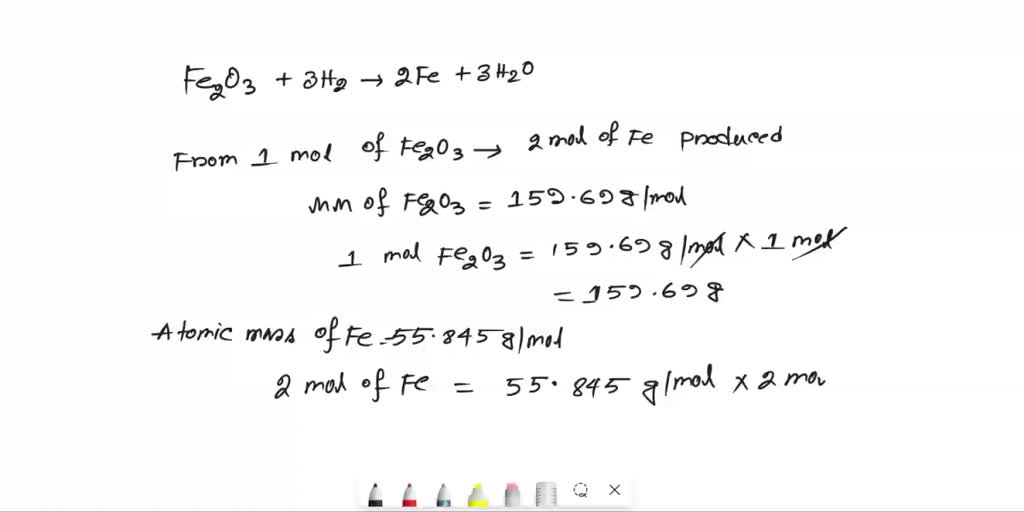 Fe₂O₃ + 3H₂ → 2Fe + 3H₂O
From 1 mol of Fe₂O₃ → 2 mol of Fe produced
MM of Fe₂O₃ = 159.69 g/mol
1 mol Fe₂O₃ = 159.69 g/mol × 1 mol
= 159.69 g
Atomic mass of Fe - 55.845 g/mol
2 mol of Fe = 55.845 g/mol × 2 mo